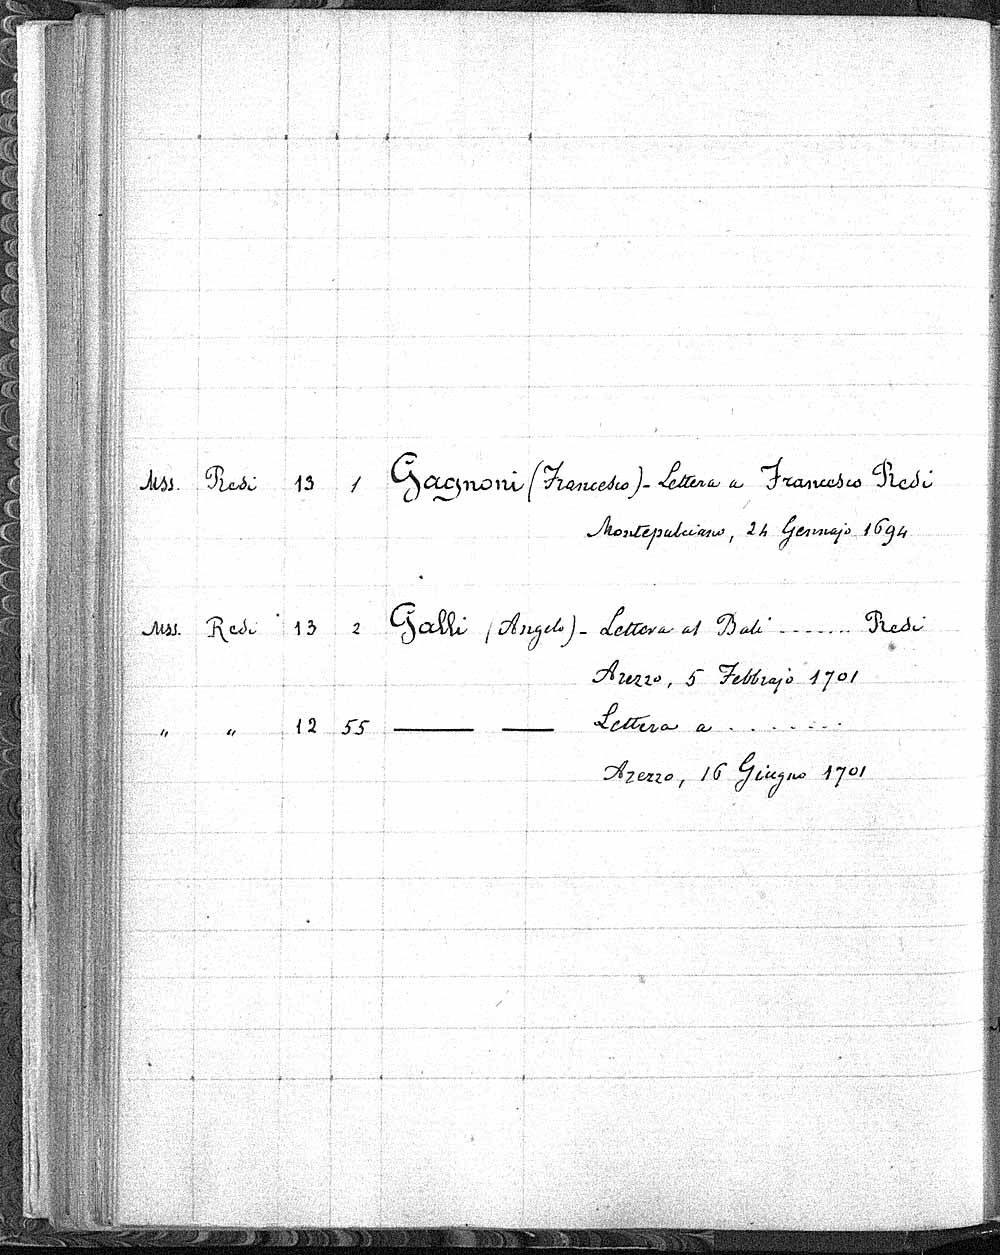 Mss. Redi 13 1 Gagnoni (Francesco) - Lettera a Francesco Redi
Montepulciano, 24 Gennajo 1694
Mss. Redi 13 2 Galli (Angelo) - Lettera al Balì ....... Redi
Arezzo, 5 Febbrajo 1701
„ „ 12 55 —— —— Lettera a ........
Arezzo, 16 Giugno 1701